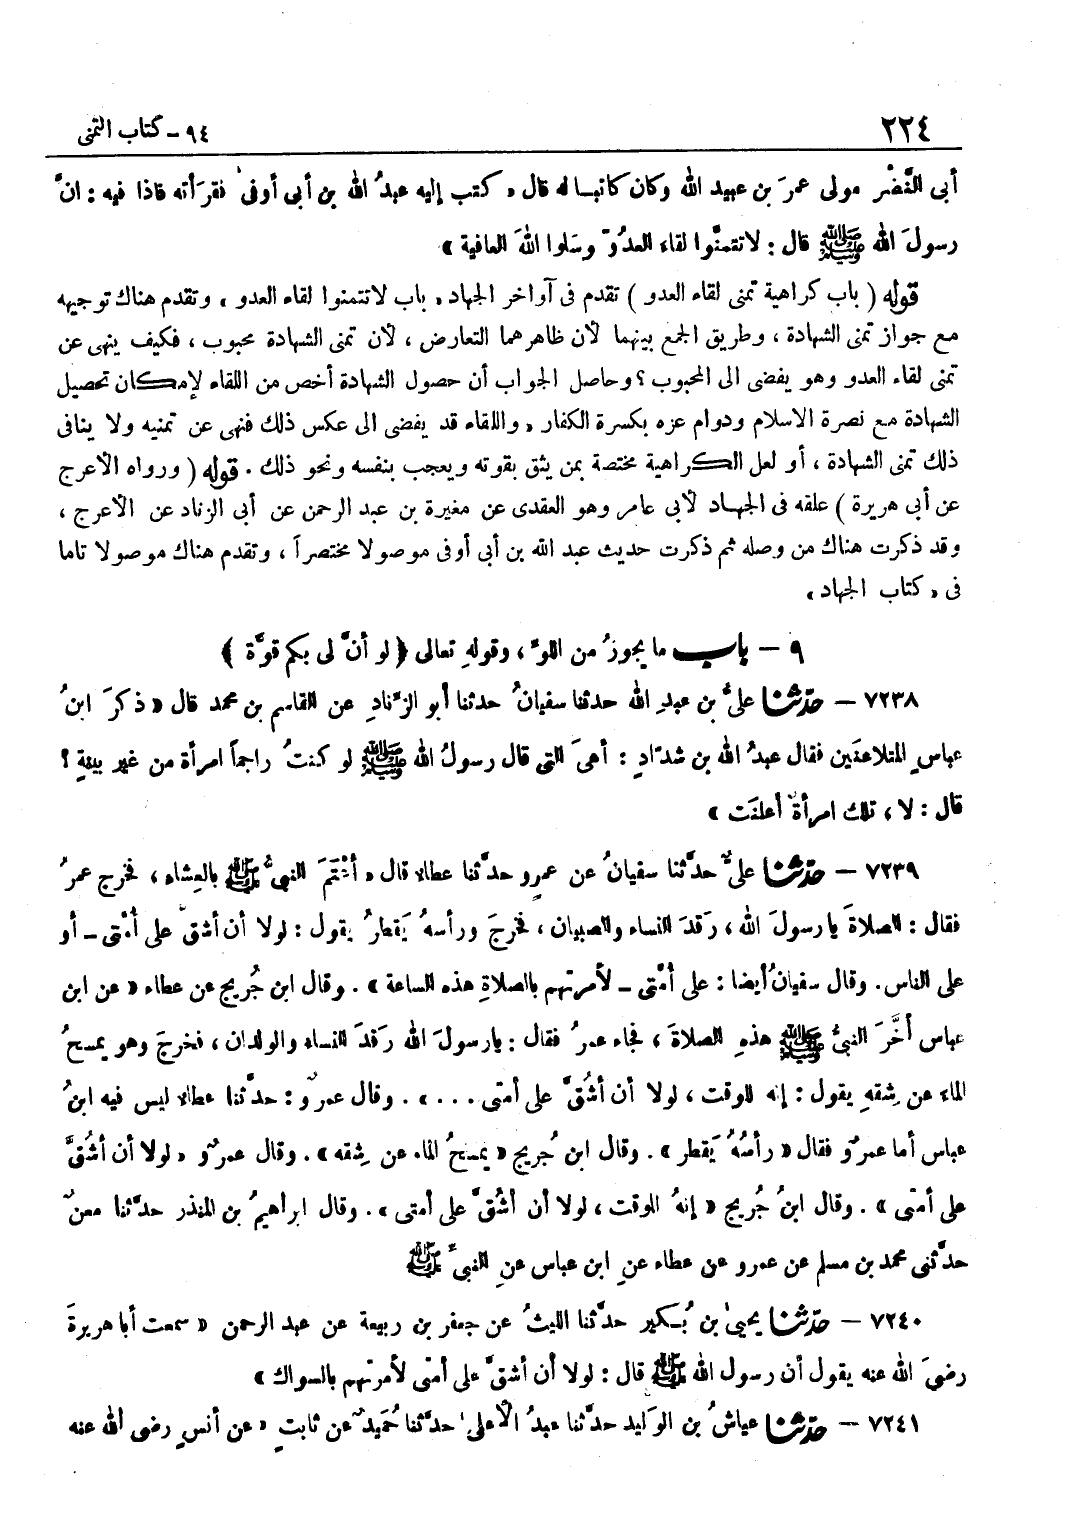 ٢٢٤
٩٤ - كتاب التمنى
أبى النَّضْر مولى عمرَ بن عبيد الله وكان كاتبا له قال « كتب إليه عبدُ الله بن أبى أوفى فقرَأته فاذا فيه : انَّ
رسولَ الله ﷺ قال : لاتتمنَّوا لقاء العدُوّ وسَلوا اللهَ العافية »
قوله ( باب كراهية تمنى لقاء العدو ) تقدم فى أواخر الجهاد « باب لاتتمنوا لقاء العدو » وتقدم هناك توجيهه
مع جواز تمنى الشهادة ، وطريق الجمع بينهما لأن ظاهرهما التعارض ، لأن تمنى الشهادة محبوب ، فكيف ينهى عن
تمنى لقاء العدو وهو يفضى الى المحبوب ؟ وحاصل الجواب أن حصول الشهادة أخص من اللقاء لإمكان تحصيل
الشهادة مع نصرة الاسلام ودوام عزه بكسرة الكفار ، واللقاء قد يفضى الى عكس ذلك فنهى عن تمنيه ولا ينافى
ذلك تمنى الشهادة ، أو لعل الكراهية مختصة بمن يثق بقوته ويعجب بنفسه ونحو ذلك . قوله ( ورواه الأعرج
عن أبى هريرة ) علقه فى الجهاد لأبى عامر وهو العقدى عن مغيرة بن عبد الرحمن عن أبى الزناد عن الأعرج ،
وقد ذكرت هناك من وصله ثم ذكرت حديث عبد الله بن أبى أوفى موصولا مختصراً ، وتقدم هناك موصولا تاما
فى « كتاب الجهاد »
٩ - باب ما يجوزُ من اللوّ ، وقولهِ تعالى ﴿ لو أنَّ لى بكم قوَّة ﴾
٧٢٣٨ - حدّثنا علىُّ بن عبدِ الله حدثنا سفيانُ حدثنا أبو الزّنادِ عن القاسم بن محمد قال « ذكرَ ابنُ
عباسٍ المتلاعنَين فقال عبدُ الله بن شدّادٍ : أهىَ التى قال رسولُ الله ﷺ لو كنتُ راجماً امرأة من غير بيّنةٍ ؟
قال : لا ، تلك امرأةٌ أعلنَت »
٧٢٣٩ - حدّثنا علىٌّ حدَّثنا سفيانُ عن عمرٍو حدَّثنا عطاء قال « أعْتَمَ النبىُّ ﷺ بالعِشاء ، فخرج عمرُ
فقال : الصلاةَ يا رسولَ الله ، رَقدَ النساء والصبيان ، فخرجَ ورأسهُ يَقطرُ يقول : لولا أن أشقّ على أمَّتى - أو
على الناس . وقال سفيانُ أيضا : على أمَّتى - لأمرتهم بالصلاةِ هذه الساعة » . وقال ابن جُريج عن عطاء « عن ابن
عباس أخَّرَ النبىُّ ﷺ هذهِ الصلاةَ ، فجاء عمرُ فقال : يا رسولَ الله رَقدَ النساء والولدان ، فخرجَ وهو يمسحُ
الماء عن شِقهِ يقول : إنه للوقت ، لولا أن أشُقَّ على أمتى ... » . وقال عمرٌو : حدَّثنا عطاء ليس فيه ابنُ
عباس أما عمرٌو فقال « رأسُهُ يَقطر » . وقال ابن جُريج « يمسحُ الماء عن شِقه » . وقال عمرٌو « لولا أن أشُقَّ
على أمتى » . وقال ابنُ جُريج « إنهُ للوقت ، لولا أن أشُقَّ على أمتى » . وقال ابراهيمُ بن المنذر حدَّثنا معنٌ
حدَّثنى محمد بن مسلم عن عمرو عن عطاء عنِ ابن عباس عنِ النبىّ ﷺ
٧٢٤٠ - حدّثنا يحيىٰ بن بُكير حدَّثنا الليثُ عن جعفر بن ربيعة عن عبد الرحمن « سمعت أبا هريرةَ
رضىَ الله عنه يقول أن رسول الله ﷺ قال : لولا أن أشقَّ على أمتى لأمرتهم بالسواك »
٧٢٤١ - حدّثنا عياشُ بن الوَليد حدَّثنا عبدُ الأعلى حدَّثنا حُمَيدٌ عن ثابتٍ « عن أنسٍ رضى الله عنه